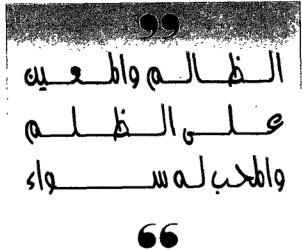 الظالم والمعين
على الظلم
والمحب له سواء